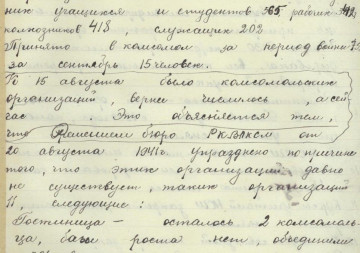 них учащихся и студентов 565 рабочих 342,
колхозников 418, служащих 202
Принято в комсомол за период войны
за сентябрь 15 человек.
По 15 августа было комсомольских
организаций вернее числилось, а сей-
час . Это объясняется тем,
что Решением бюро РКВЛКСМ от
20 августа 1941 г. упразднено по причине
того, что этих организаций давно
не существует, таких организаций
11, следующие:
Гостиница – осталось 2 комсомоль-
ца, базы роста нет, объединили